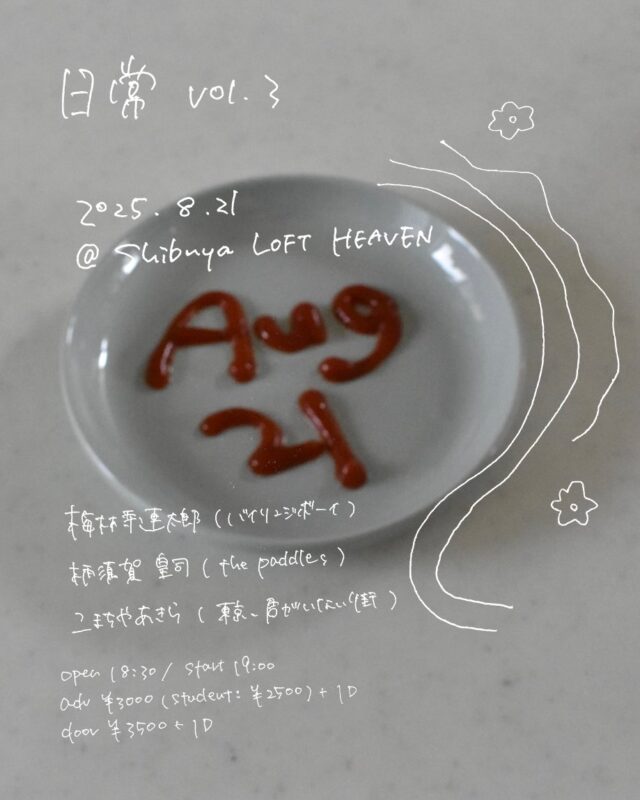 日常 vol.3
2025.8.21
@ Shibuya LOFT HEAVEN
Aug
21
(バイリンジボーイ)
柄須賀 皇司 (the paddles)
こまちやあきら (東京、君がいない街)
open 18:30 / start 19:00
adv ¥3000 (student: ¥2500) + 1D
door ¥3500 + 1D